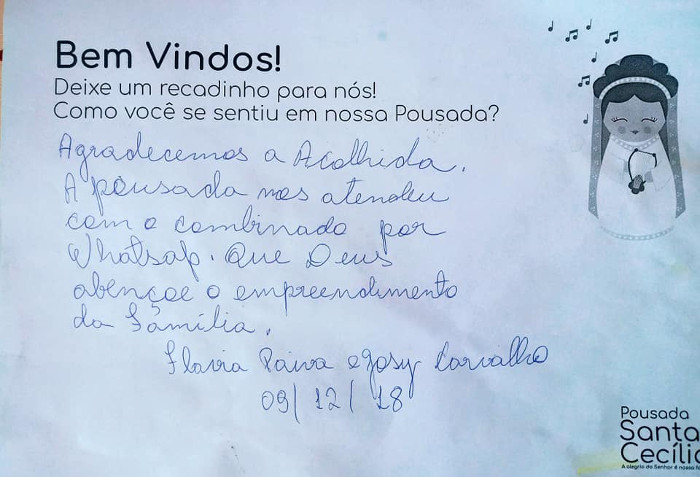 Bem Vindos!
Deixe um recadinho para nós!
Como você se sentiu em nossa Pousada?
Agradecemos a Acolhida.
A pousada nos atendeu
com o combinado por
Whatsap. Que Deus
abençoe o empreendimento
da Família.
Flavia Paiva e Josy Carvalho
09/12/18
Pousada
Santa
Cecília
A alegria do Senhor é nossa fo